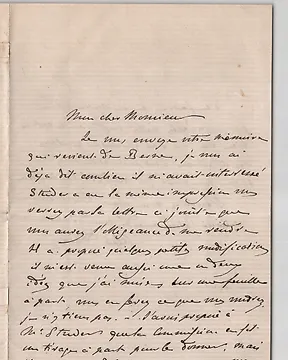 Mon cher Monsieur
Je vous envoye votre mémoire
qui revient de Berne, je vous ai
déja dit combien il m'avait intéressé
Studer a eu la même impression vous
verrez par sa lettre ci jointe que
vous aurez l'obligeance de me rendre
Il a proposé quelques petites modifications
il m'est venu aussi une ou deux
idées que j'ai mises sur une feuille
à part, vous en ferez ce que vous voudrez,
je n'y tiens pas. — J'avais proposé à
Mr Studer que la Commission en fit
un tirage à part pour le donner, mais